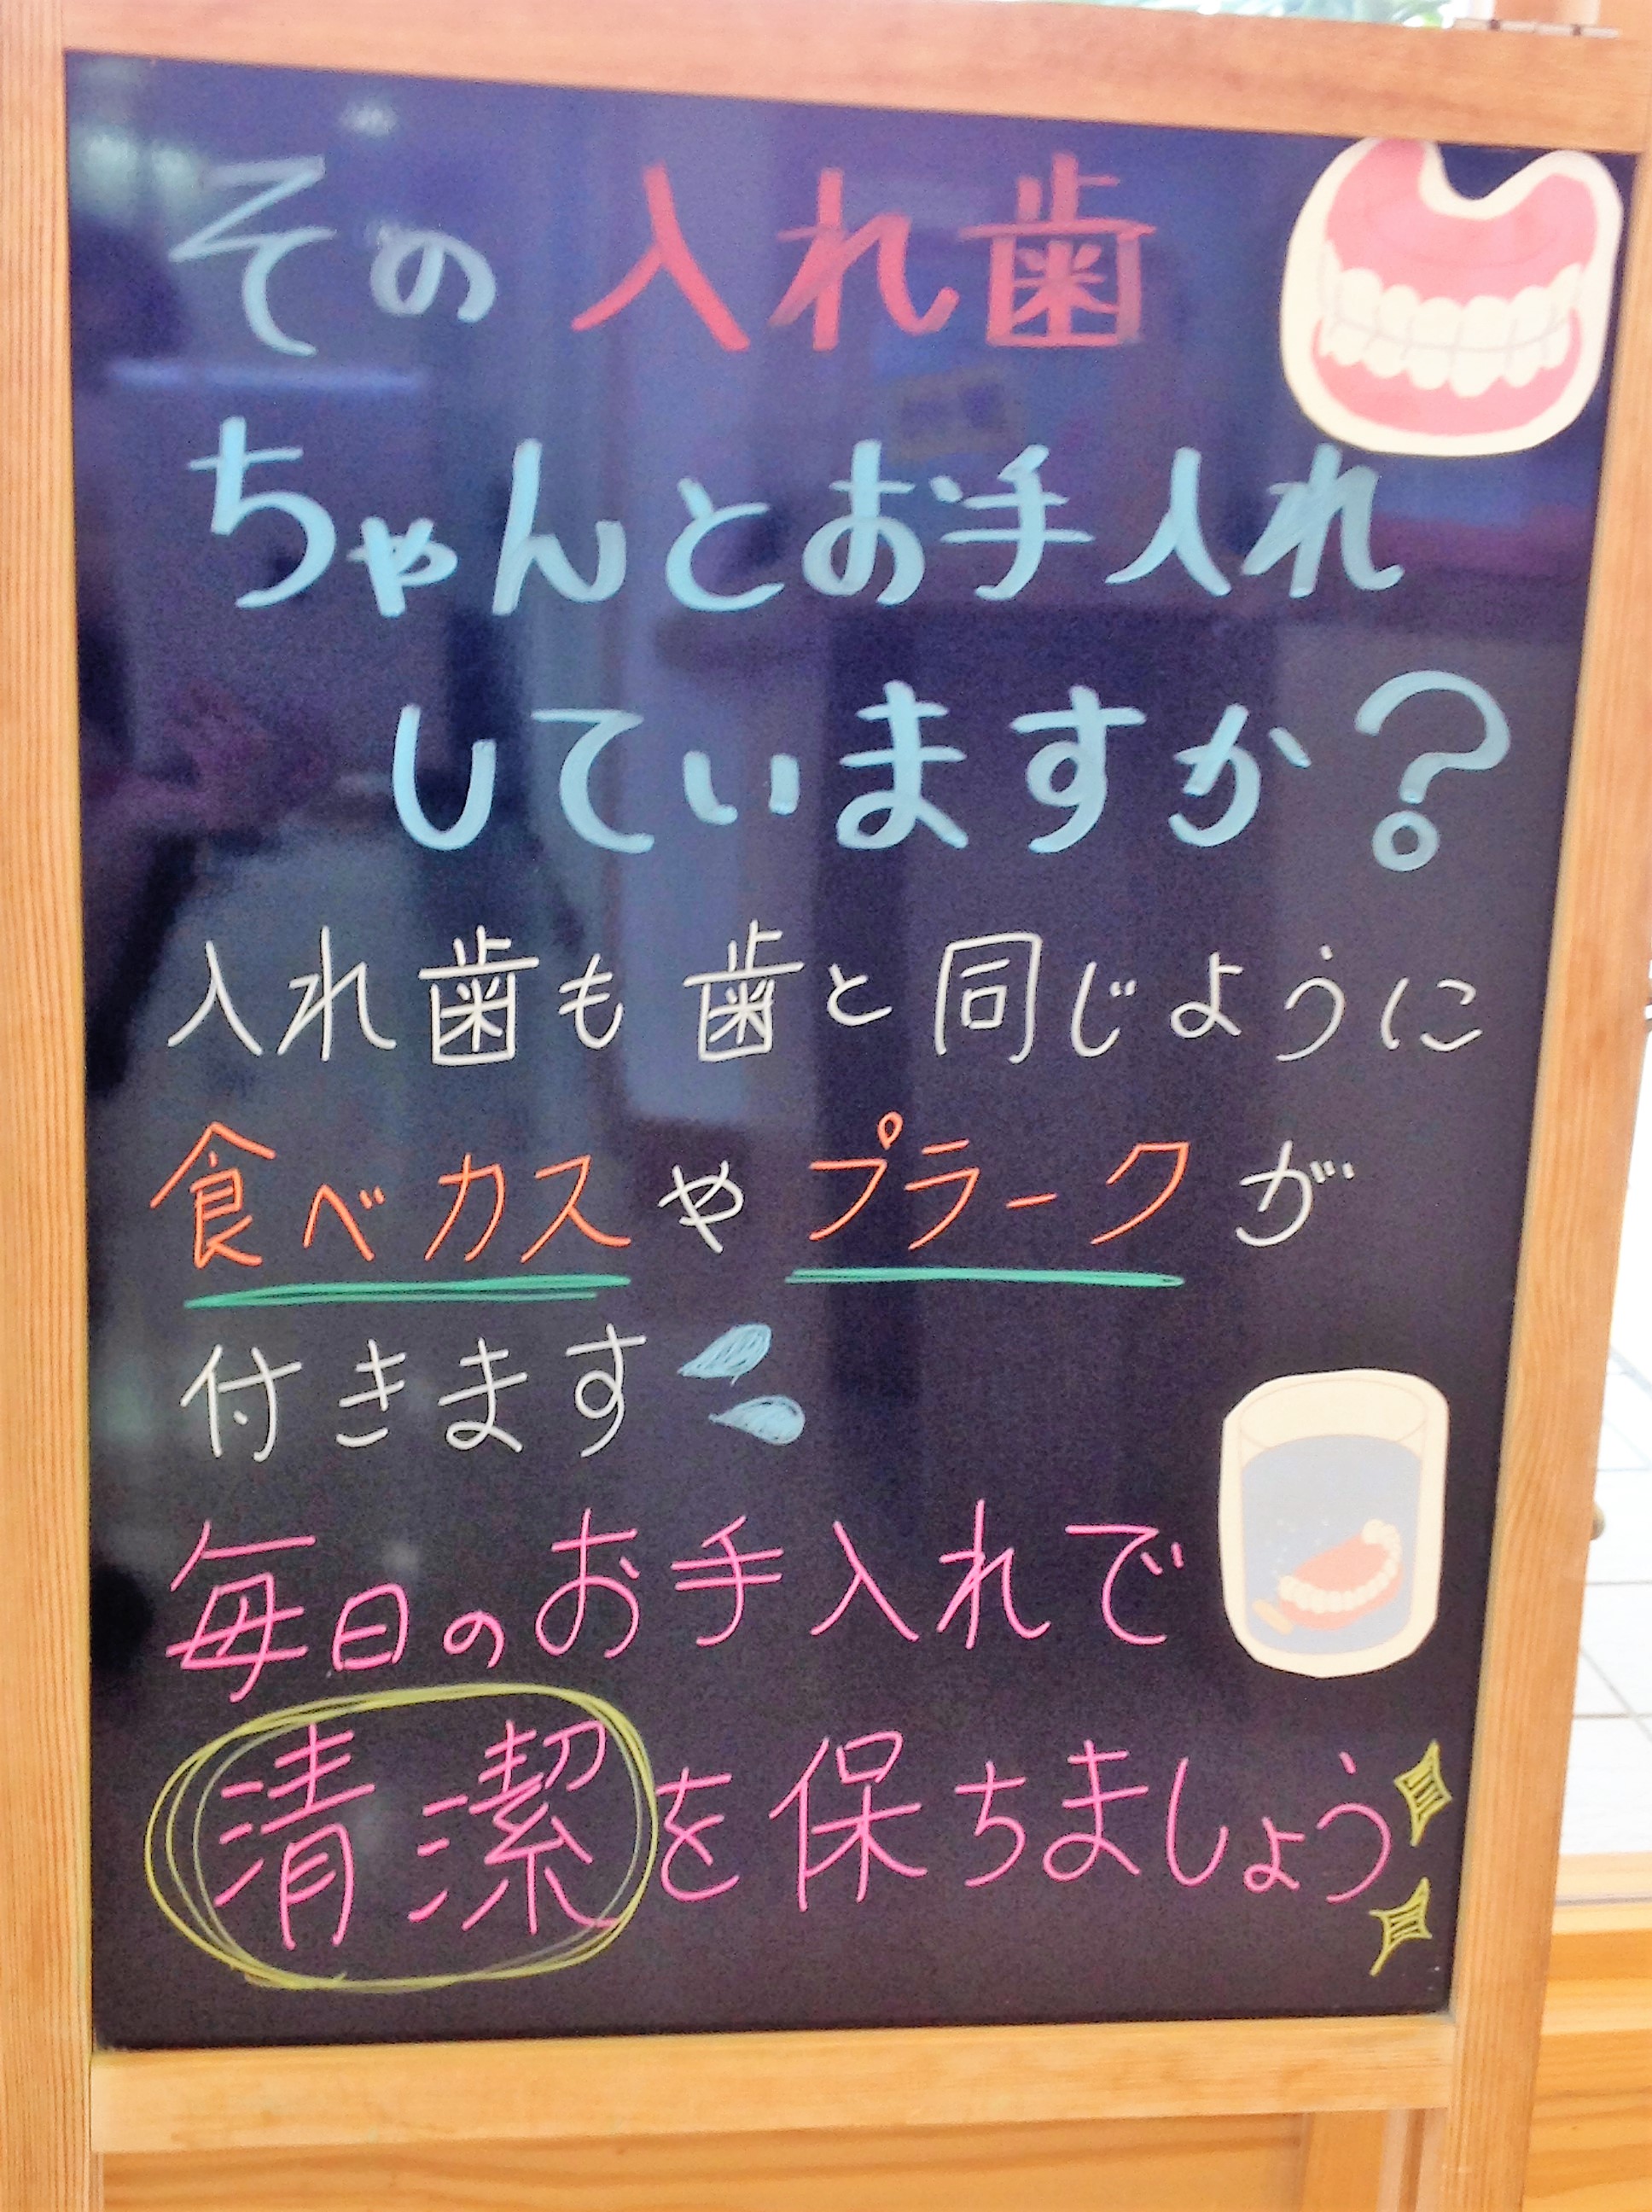 その入れ歯
ちゃんとお手入れ
していますか?
入れ歯も歯と同じように
食べカスやプラークが
付きます
毎日のお手入れで
清潔を保ちましょう